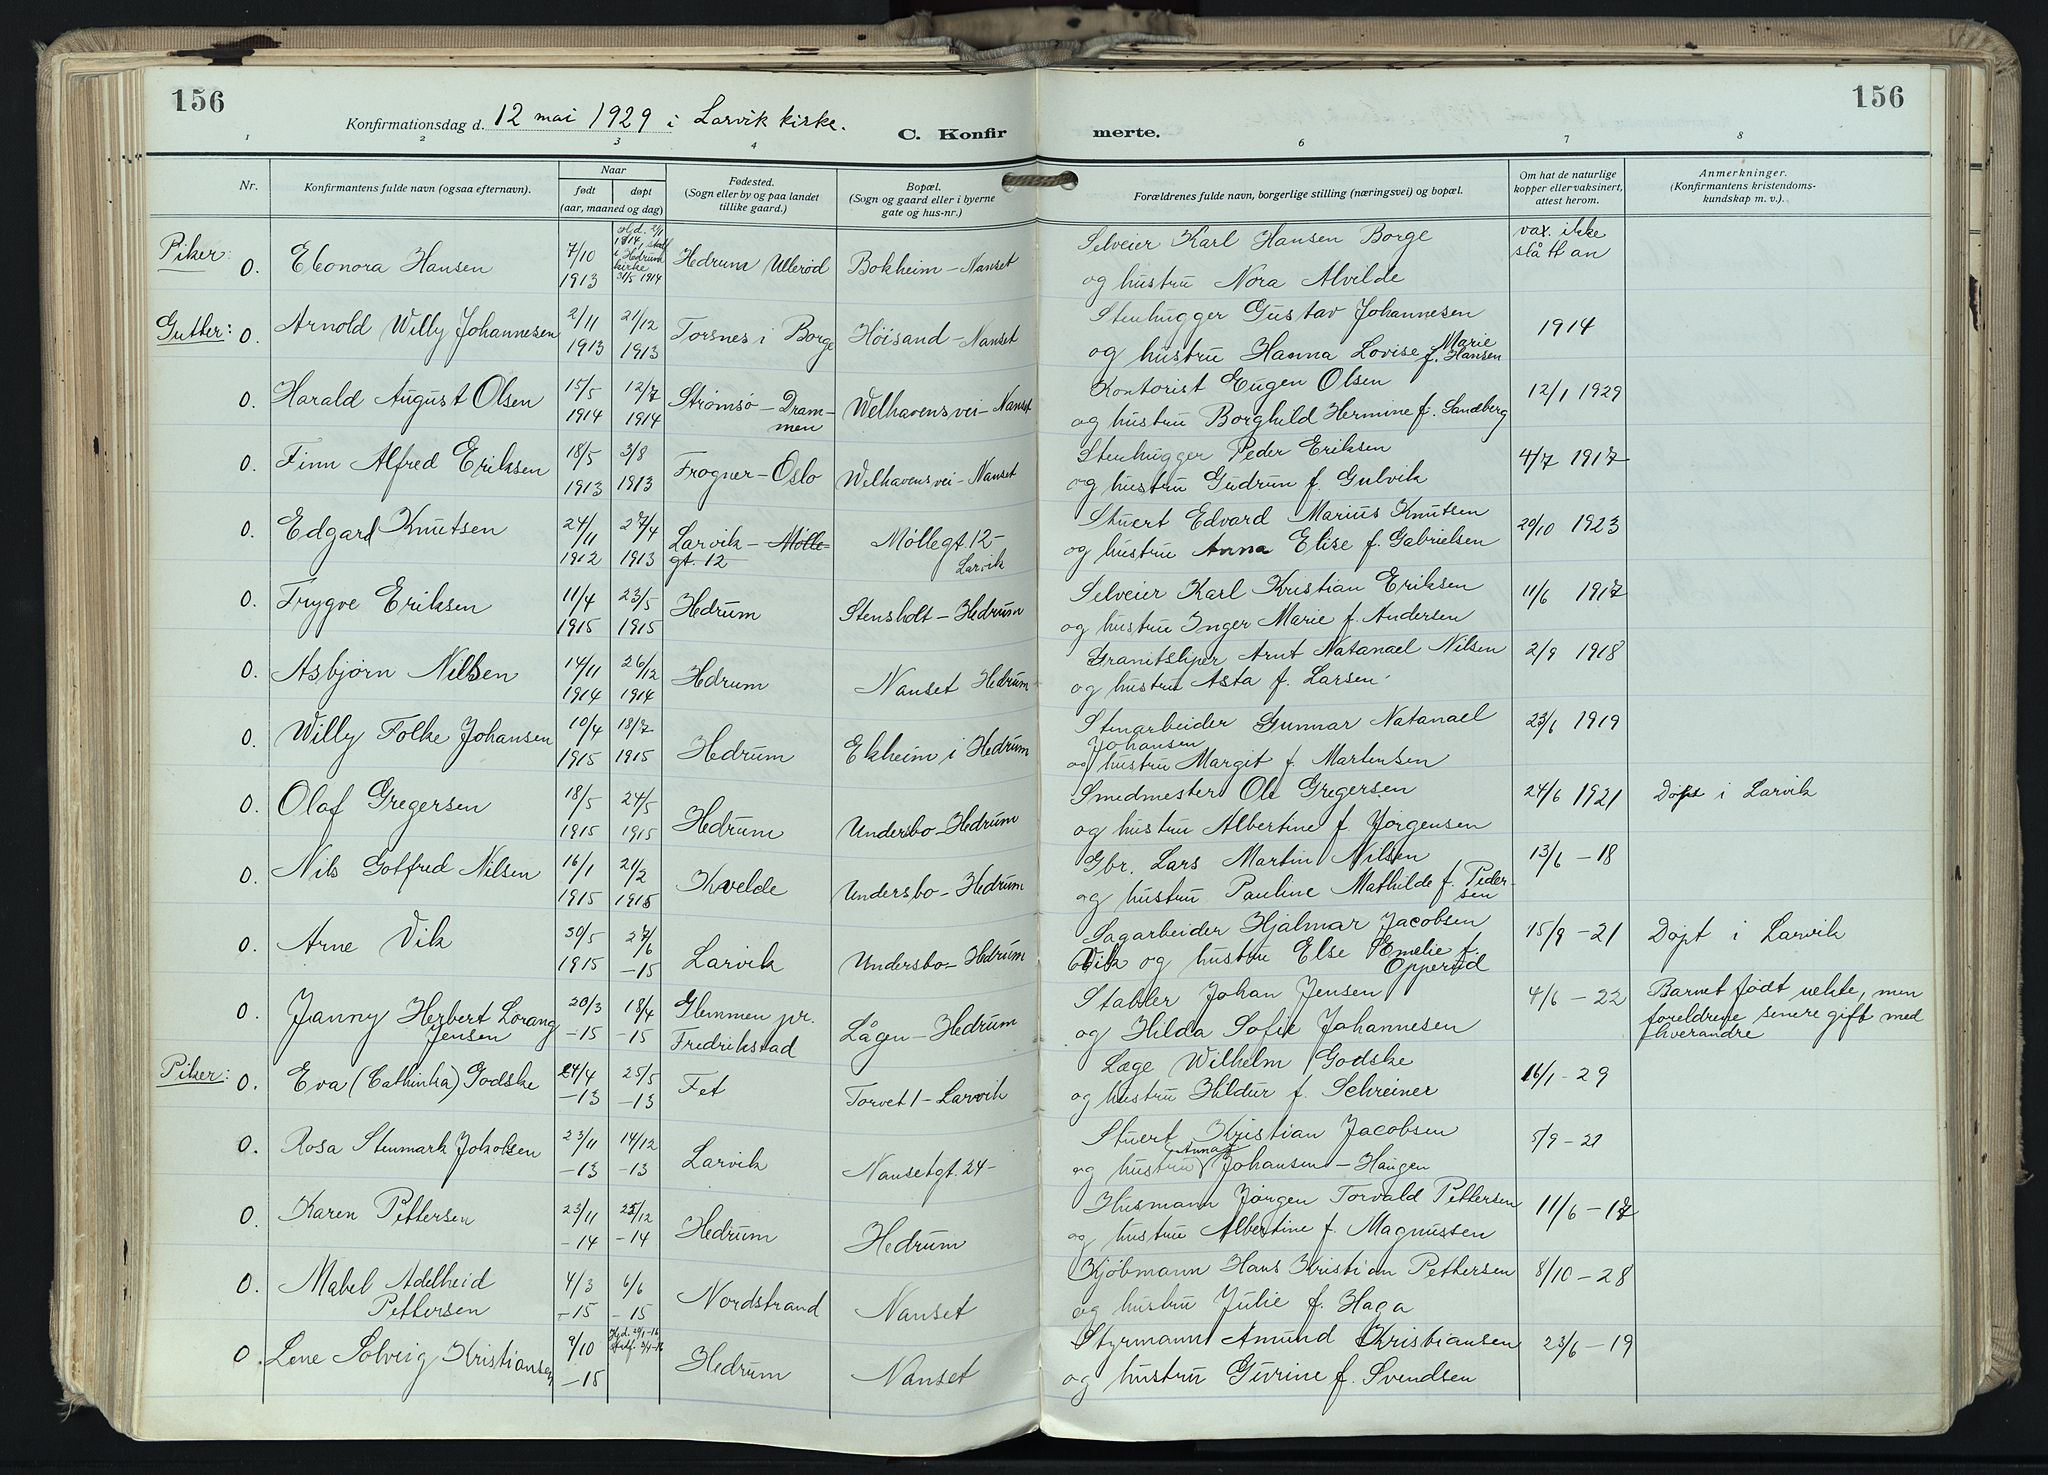 156
156
Konfirmationsdag d. 12 mai 1929 i Larvik kirke.
C. Konfirmerte.
1 2 3 4 6 7 8
Nr.
Konfirmantens fulde navn (ogsaa efternavn).
Naar
født
døpt
(aar, maaned og dag)
Fødested.
(Sogn eller by og paa landet
tillike gaard.)
Bopæl.
(Sogn og gaard eller i byerne
gate og hus-nr.)
Forældrenes fulde navn, borgerlige stilling (næringsvei) og bopæl.
Om hat de naturlige
kopper eller vaksinert,
attest herom.
Anmerkninger.
(Konfirmantens kristendoms-
kundskap m. v.).
Piker: 0. Eleonora Hansen 7/10 1913 Hjd. 2/1 1914, stadf. i Hedrum kirke 31/5 1914 Hedrum Ullerød Bokheim - Nanset Selveier Karl Hansen Borge vax. ikke
og hustru Nora Alvilde slått an
Gutter: 0. Arnold Willy Johannesen 2/11 1913 21/12 1913 Torsnes i Borge Höisand - Nanset Stenhugger Gustav Johannesen 1914
og hustru Hanna Lovise Marie f. Hansen
0. Harald August Olsen 15/5 1914 12/7 1914 Strømsø - Drammen Welhavens vei - Nanset Kontorist Eugen Olsen 12/1 1929
og hustru Borghild Hermine f. Sandberg
0. Finn Alfred Eriksen 18/5 1913 3/8 1913 Frogner - Oslo Welhavens vei - Nanset Stenhugger Peder Eriksen 4/7 1917
og hustru Gudrun f. Gulvik
0. Edgard Knutsen 24/11 1912 27/4 1913 Larvik - Møllegt. 12 Møllegt 12 - Larvik Stuert Edvard Marius Knutsen 20/10 1923
og hustru Anna Elise f. Gabrielsen
0. Trygve Eriksen 11/4 1915 23/5 1915 Hedrum Stensholt - Hedrum Selveier Karl Kristian Eriksen 11/6 1917
og hustru Inger Marie f. Andersen
0. Asbjørn Nilsen 14/11 1914 26/12 1914 Hedrum Nanset Hedrum Granitsliper Arnt Natanael Nilsen 2/9 1918
og hustru Asta f. Larsen
0. Willy Folke Johansen 10/4 1915 18/7 1915 Hedrum Ekheim i Hedrum Stenarbeider Gunnar Natanael 23/6 1919
Johansen
og hustru Margit f. Martensen
0. Olaf Gregersen 18/5 1915 24/5 1915 Hedrum Undersbo - Hedrum Smedmester Ole Gregersen 24/6 1921 Døpt i Larvik
og hustru Albertine f. Jørgensen
0. Nils Gotfred Nilsen 16/1 1915 21/2 1915 Kvelde Undersbo - Hedrum Gbr. Lars Martin Nilsen 13/6 - 18
og hustru Pauline Mathilde f. Pedersen
0. Arne Vik 30/5 1915 27/6 - 15 Larvik Undersbo - Hedrum Sagarbeider Hjalmar Jacobsen 15/9 - 21 Døpt i Larvik
Vik og hustru Else Emelie f. Opperud
0. Janny Herbert Lorang Jensen 20/3 - 15 18/4 - 15 Glemmen pr. Fredrikstad Lågen - Hedrum Stabler Johan Jensen 4/6 - 22 Barnet født uekte, men
og Hilda Sofie Johannesen foreldrene senere gift med
hverandre
Piker: 0. Eva (Cathinka) Godske 24/4 - 13 25/5 - 13 Fet Torvet 1 - Larvik Læge Wilhelm Godske 16/1 - 29
og hustru Hildur f. Schreiner
0. Rosa Stenmark Jokobsen 23/11 - 13 14/12 - 13 Larvik Nansetgt. 24 - Stuert Kristian Jacobsen 5/9 - 21
og hustru Anna f. Johansen - Haugen
0. Karen Pettersen 23/11 - 14 25/12 - 14 Hedrum Hedrum Husmann Jørgen Torvald Pettersen 11/6 - 17
og hustru Albertine f. Magnussen
0. Mabel Adelheid Pettersen 4/3 - 15 6/6 - 15 Nordstrand Nanset Kjøbmann Hans Kristian Pettersen 8/10 - 28
og hustru Julie f. Haga
0. Lene Solveig Kristiansen 9/10 - 15 Hjd. Hedrum Nanset Styrmann Amund Kristiansen 23/6 - 19
og hustru Gurine f. Svendsen